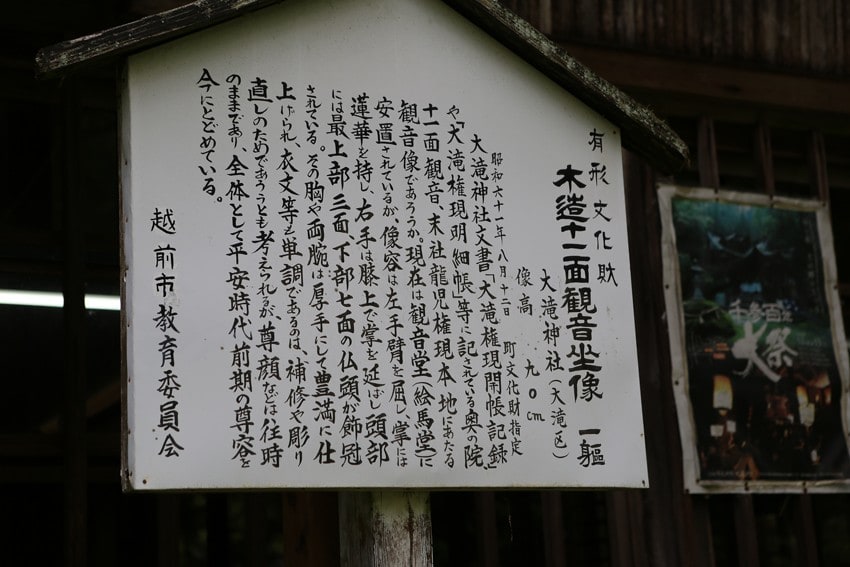 有形文化財
木造十一面観音坐像 一軀
大滝神社(大滝区)
像高 九〇cm
昭和六十一年八月十二日 町文化財指定
大滝神社文書「大滝権現開帳記録」
や「大滝権現明細帳」等に記されている奥の院
十一面観音、末社龍児権現本地にあたる
観音像であろうか。現在は観音堂(絵馬堂)に
安置されているが、像容は左手臂を屈し、掌には
蓮華を持し、右手は膝上で掌を延ばし頭部
には最上部三面、下部七面の仏頭が飾冠
されている。その胸や両腕は厚手にして豊満に仕
上げられ、衣文等も単調であるのは、補修や彫り
直しのためであろうとも考えられるが、尊顔などは往時
のままであり、全体として平安時代前期の尊容を
今にとどめている。
越前市教育委員会
大祭